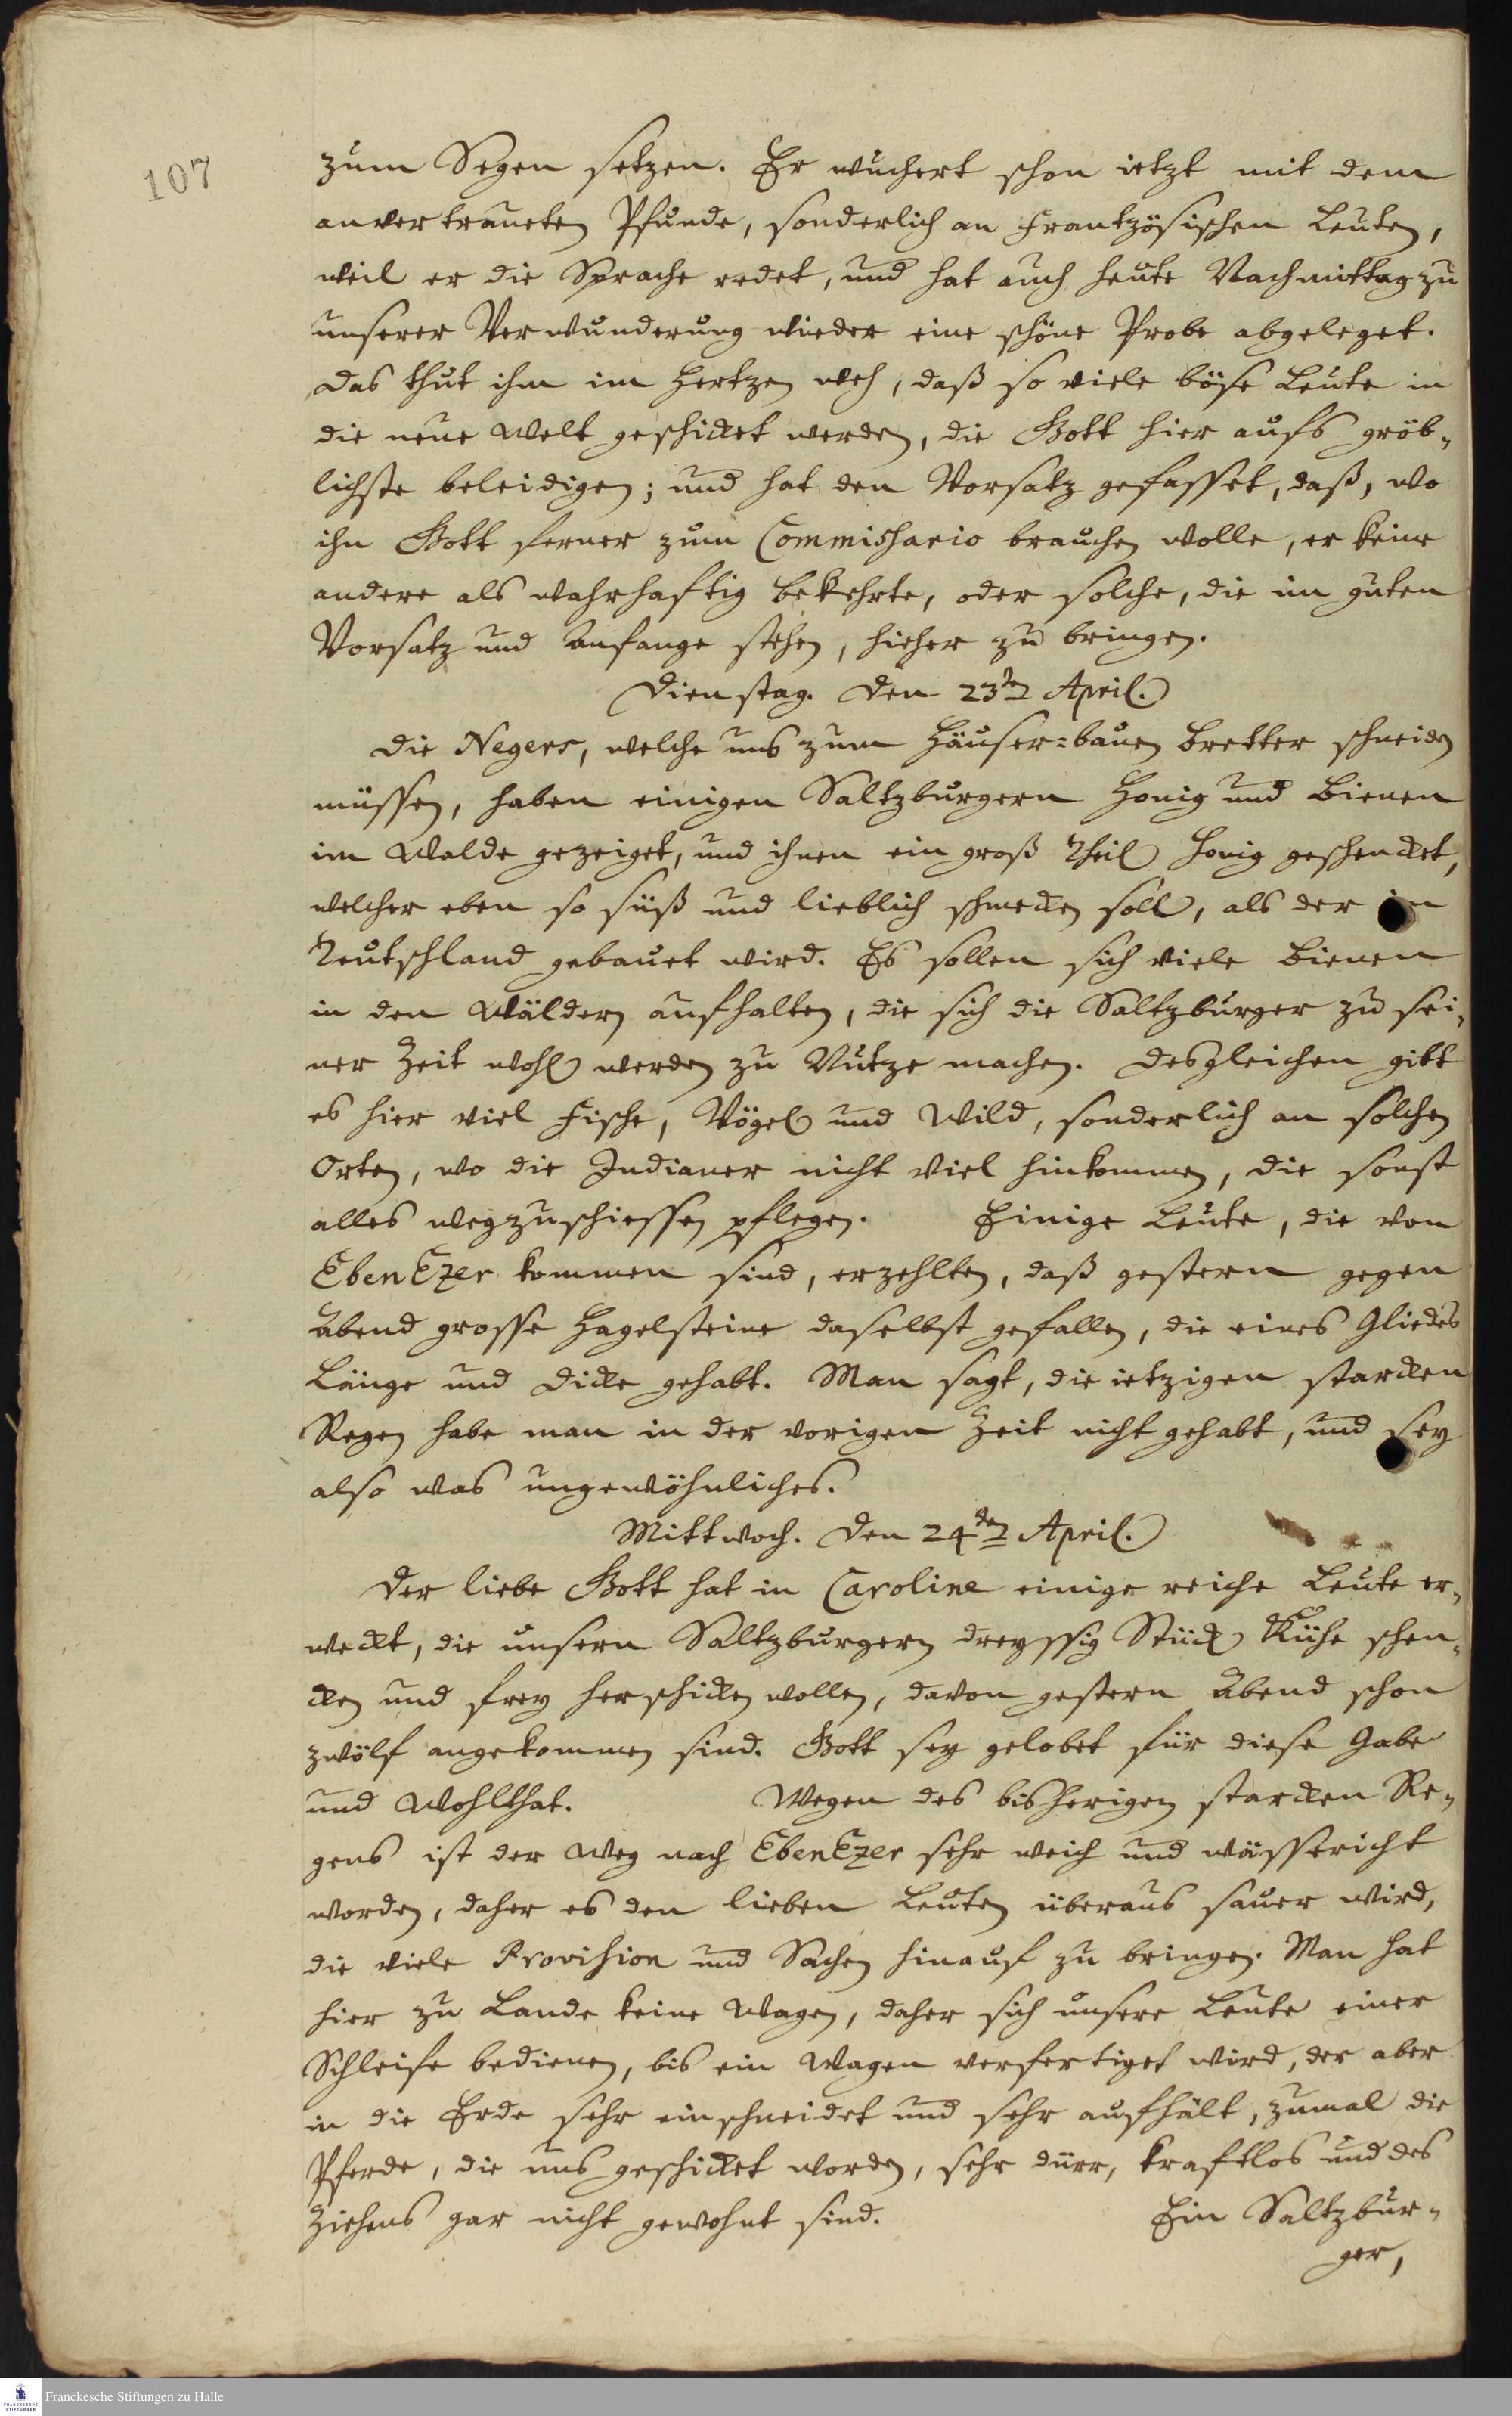 107
zum Segen setzen. Er wuchert schon ietzt mit dem
anvertraueten Pfunde, sonderlich an Frantzösischen Leuten,
weil er die Sprache redet, und hat auch heute Nachmittag zu
unserer Verwunderung wieder eine schöne Probe abgeleget.
Das thut ihm im Hertzen weh, daß so viele böse Leute in
die neue Welt geschicket werden, die Gott hier aufs gröb-
lichste beleidigen; und hat den Vorsatz gefasset, daß, wo
ihn Gott ferner zum Commissario brauchen wolle, er keine
andere als wahrhaftig bekehrte, oder solche, die im guten
Vorsatz und Anfange stehen, hieher zu bringen.
Dienstag. den 23ten April.
Die Negers, welche uns zum Häuser=bauen Bretter schneiden
müssen, haben einigen Saltzburgern Honig und Bienen
im Walde gezeiget, und ihnen ein groß Theil Honig geschencket,
welcher eben so süß und lieblich schmecken soll, als der in
Teutschland gebauet wird. Es sollen sich viele Bienen
in den Wäldern aufhalten, die sich die Saltzburger zu sei-
ner Zeit wohl werden zu Nutze machen. Desgleichen gibt
es hier viel Fische, Vögel und Wild, sonderlich an solchen
Orten, wo die Indianer nicht viel hinkommen, die sonst
alles wegzuschiessen pflegen. Einige Leute, die von
EbenEzer kommen sind, erzehlten, daß gestern gegen
Abend grosse Hagelsteine daselbst gefallen, die eines Gliedes
Länge und Dicke gehabt. Man sagt, die ietzigen starcken
Regen habe man in der vorigen Zeit nicht gehabt, und sey
also was ungewöhnliches.
Mittwoch. den 24ten April.
Der liebe Gott hat in Caroline einige reiche Leute er-
weckt, die unsern Saltzburgern dreyssig Stück Kühe schen-
cken und frey herschicken wollen, davon gestern Abend schon
zwölf angekommen sind. Gott sey gelobet für diese Gabe
und Wohlthat. Wegen des bisherigen starcken Re-
gens ist der Weg nach EbenEzer sehr weich und wässericht
worden, daher es den lieben Leuten überaus sauer wird,
die viele Provision und Sachen hinauf zu bringen. Man hat
hier zu Lande keine Wagen, daher sich unsere Leute einer
Schleife bedienen, bis ein Wagen verfertiget wird, der aber
in die Erde sehr einschneidet und sehr aufhält, zumal die
Pferde, die uns geschicket worden, sehr dürr, kraftlos und des
Ziehens gar nicht gewohnt sind. Ein Saltzbur-
ger,
Franckesche Stiftungen zu Halle